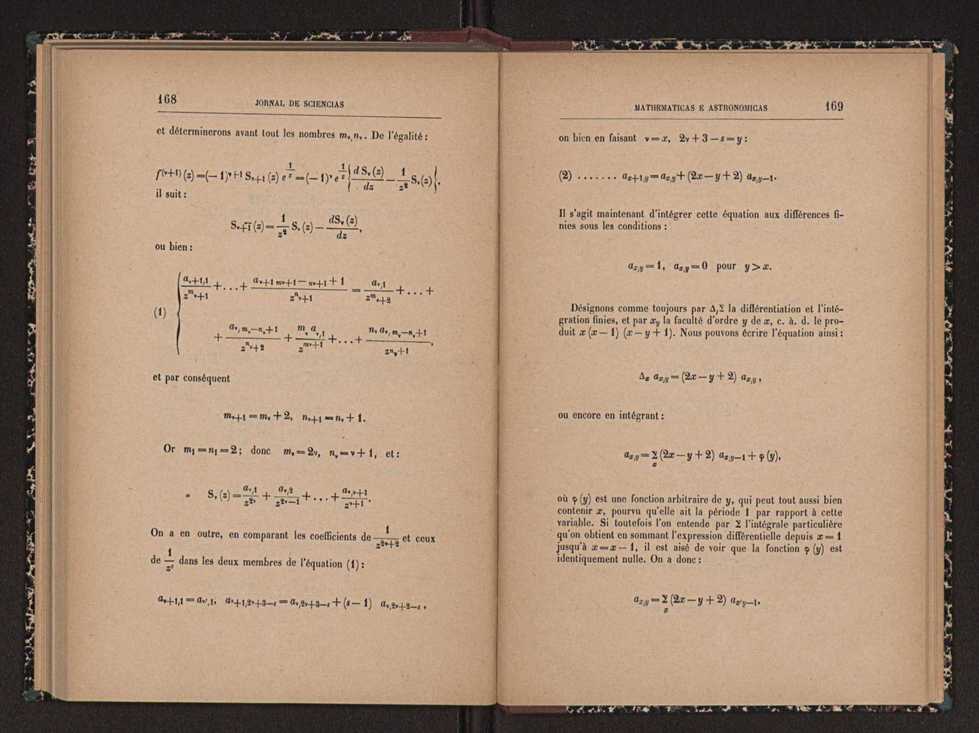 168 JORNAL DE SCIENCIAS
et déterminerons avant tout les nombres mᵥ, nᵥ. De l'égalité :
f⁽ᵛ⁺¹⁾ (z) = (— 1)ᵛ⁺¹ Sᵥ₊₁ (z) e^{1/z} = (— 1)ᵛ e^{1/z} { d Sᵥ (z)/dz — 1/z² Sᵥ (z) },
il suit :
Sᵥ₊₁ (z) = 1/z² Sᵥ (z) — dSᵥ (z)/dz,
ou bien :
(1) { a_{ν+1,1}/z^{m_{ν+1}} + . . . + a_{ν+1 m_{ν+1} — n_{ν+1} + 1}/z^{n_{ν+1}} = a_{ν,1}/z^{m_{ν+2}} + . . . +
+ a_{ν, m_ν — n_ν + 1}/z^{n_{ν+2}} + m_ν a_{ν,1}/z^{m_{ν+1}} + . . . + n_ν a_{ν, m_ν — n_ν + 1}/z^{n_ν+1},
et par conséquent
mᵥ₊₁ = mᵥ + 2, nᵥ₊₁ = nᵥ + 1.
Or m₁ = n₁ = 2; donc mᵥ = 2ν, nᵥ = ν + 1, et :
Sᵥ (z) = a_{ν,1}/z^{2ν} + a_{ν,2}/z^{2ν—1} + . . . + a_{ν,ν+1}/z^{ν+1}.
On a en outre, en comparant les coefficients de 1/z^{2ν+2} et ceux
de 1/z^s dans les deux membres de l'équation (1) :
a_{ν+1,1} = a_{ν,1}, a_{ν+1,2ν+3—s} = a_{ν,2ν+3—s} + (s — 1) a_{ν,2ν+2—s} ,
MATHEMATICAS E ASTRONOMICAS 169
on bien en faisant ν = x, 2ν + 3 — s = y :
(2) . . . . . . . a_{x+1,y} = a_{x,y} + (2x — y + 2) a_{x,y—1}.
Il s'agit maintenant d'intégrer cette équation aux différences fi-
nies sous les conditions :
a_{x,y} = 1, a_{x,y} = 0 pour y > x.
Désignons comme toujours par Δ, Σ la différentiation et l'inté-
gration finies, et par x_y la faculté d'ordre y de x, c. à. d. le pro-
duit x (x — 1) (x — y + 1). Nous pouvons écrire l'équation ainsi :
Δ_x a_{x,y} = (2x — y + 2) a_{x,y} ,
ou encore en intégrant :
a_{x,y} = Σ_x (2x — y + 2) a_{x,y—1} + φ (y),
où φ (y) est une fonction arbitraire de y, qui peut tout aussi bien
contenir x, pourvu qu'elle ait la période 1 par rapport à cette
variable. Si toutefois l'on entende par Σ l'intégrale particulière
qu'on obtient en sommant l'expression différentielle depuis x = 1
jusqu'à x = x — 1, il est aisé de voir que la fonction φ (y) est
identiquement nulle. On a donc :
a_{x,y} = Σ_x (2x — y + 2) a_{x,y—1},